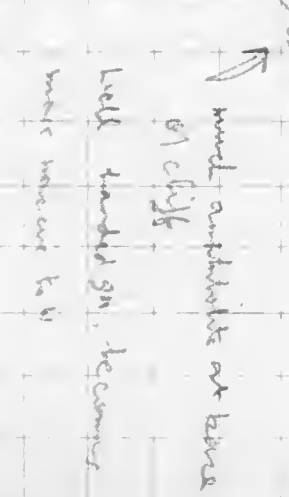 much amphibolite at base
of cliff
Well banded gn. becoming
more massive to W